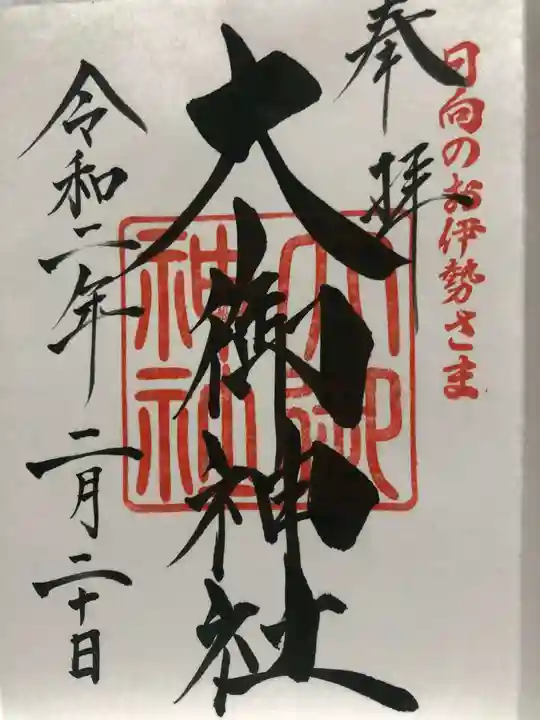 日向のお伊勢さま
奉拝
大御神社
大御神社
令和二年 二月二十日